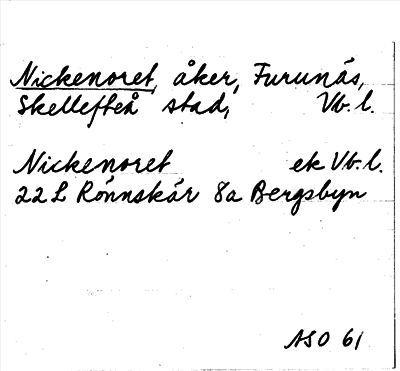 Nickenoret, åker, Furunäs,
Skellefteå stad, Vb. l.
Nickenoret ek Vb. l.
22 L Rönnskär 8a Bergsbyn
ASO 61